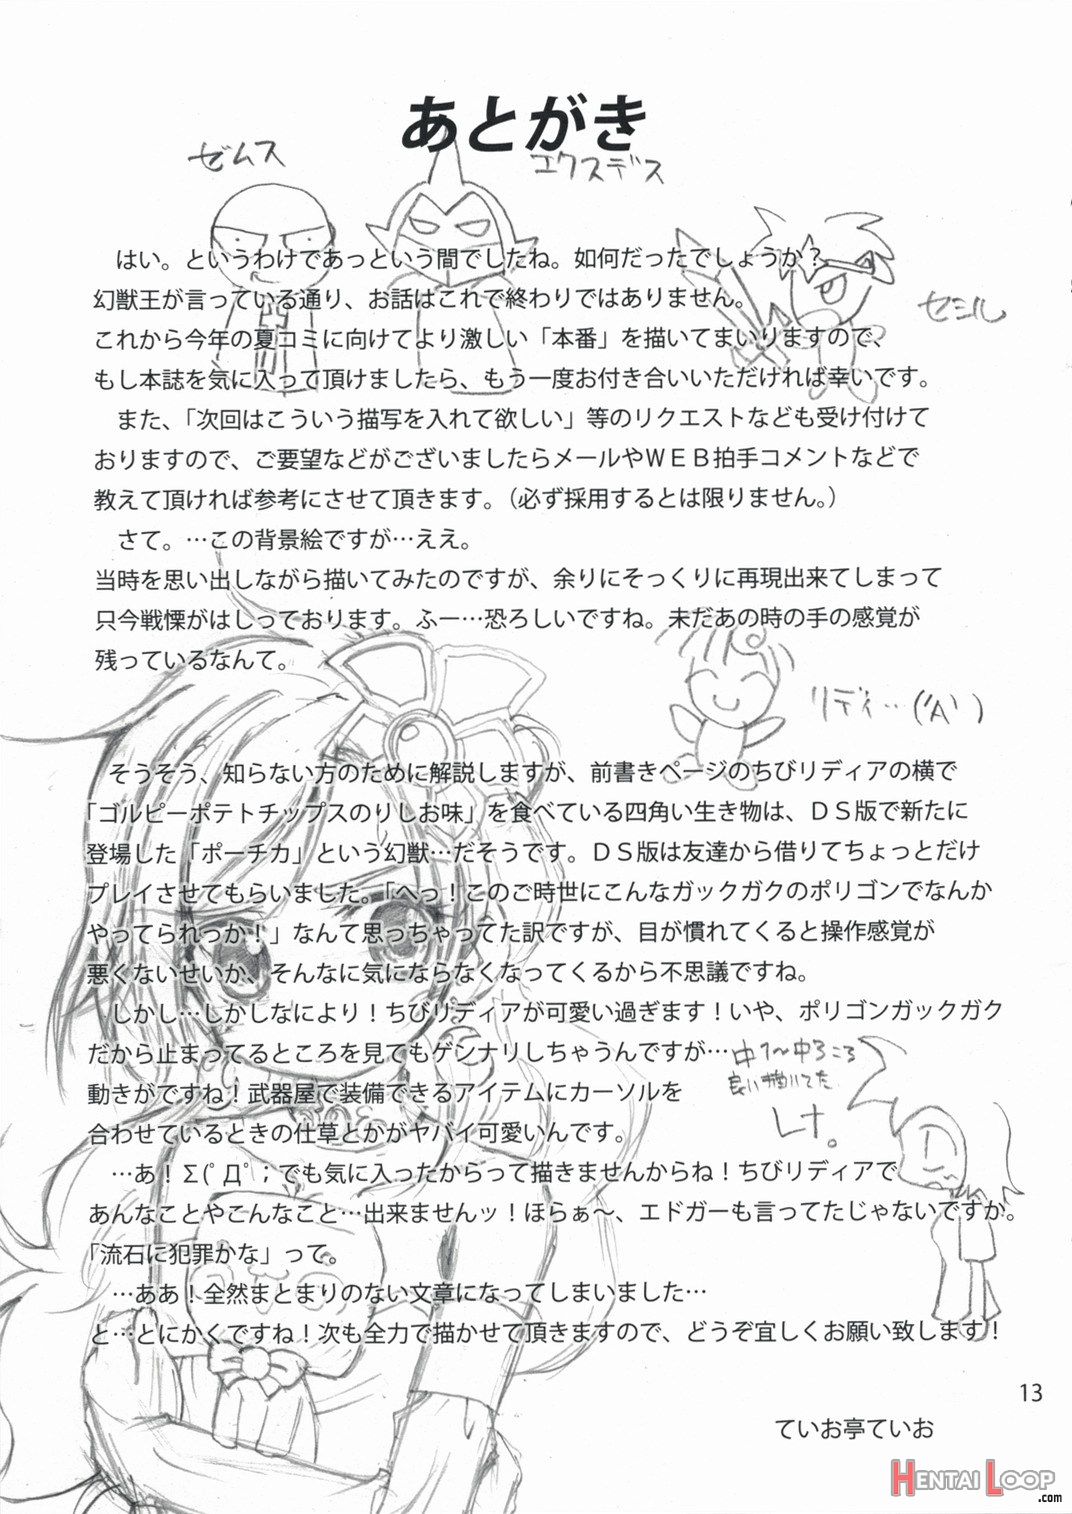 あとがき
ゼムス
エクスデス
セシル
はい。というわけであっという間でしたね。如何だったでしょうか？
幻獣王が言っている通り、お話はこれで終わりではありません。
これから今年の夏コミに向けてより激しい「本番」を描いてまいりますので、
もし本誌を気に入って頂けましたら、もう一度お付き合いいただければ幸いです。
また、「次回はこういう描写を入れて欲しい」等のリクエストなども受け付けて
おりますので、ご要望などがございましたらメールやＷＥＢ拍手コメントなどで
教えて頂ければ参考にさせて頂きます。（必ず採用するとは限りません。）
さて。…この背景絵ですが…ええ。
当時を思い出しながら描いてみたのですが、余りにそっくりに再現出来てしまって
只今戦慄がはしっております。ふー…恐ろしいですね。未だあの時の手の感覚が
残っているなんて。
リディ…('A`)
そうそう、知らない方のために解説しますが、前書きページのちびリディアの横で
「ゴルピーポテトチップスのりしお味」を食べている四角い生き物は、ＤＳ版で新たに
登場した「ポーチカ」という幻獣…だそうです。ＤＳ版は友達から借りてちょっとだけ
プレイさせてもらいました。「へっ！このご時世にこんなガックガクのポリゴンでなんか
やってられっか！」なんて思っちゃってた訳ですが、目が慣れてくると操作感覚が
悪くないせいか、そんなに気にならなくなってくるから不思議ですね。
しかし…しかしなにより！ちびリディアが可愛い過ぎます！いや、ポリゴンガックガク
だから止まってるところを見てもゲンナリしちゃうんですが…
動きがですね！武器屋で装備できるアイテムにカーソルを
合わせているときの仕草とかがヤバイ可愛いんです。
中1〜中3ころ
良い描いてた
レナ。
…あ！Σ(ﾟДﾟ；でも気に入ったからって描きませんからね！ちびリディアで
あんなことやこんなこと…出来ませんッ！ほらぁ〜、エドガーも言ってたじゃないですか。
「流石に犯罪かな」って。
…ああ！全然まとまりのない文章になってしまいました…
と…とにかくですね！次も全力で描かせて頂きますので、どうぞ宜しくお願い致します！
13
ていお亭ていお
HENTAI LOOP
.com